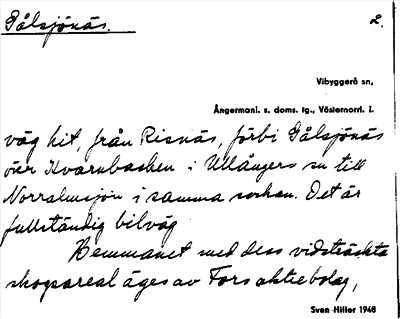 Gålsjönäs.
2.
Vibyggerå sn,
Ångermanl. s. doms. tg., Västernorrl. l.
väg hit, från Risnäs, förbi Gålsjönäs
över Kvarnbacken i Ullångers sn till
Norralmsjön i samma socken. Det är
fullständig bilväg.
Hemmanet med dess vidsträckta
skogsareal äges av Fors aktiebolag,
Sven Hiller 1948